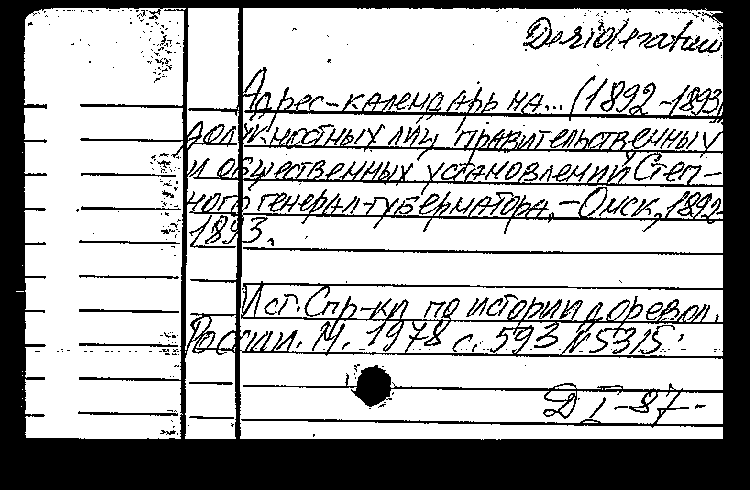 Desideratum
Адрес-календарь на... (1892-1893)
должностных лиц правительственных
и общественных установлений Степ-
ного генерал-губернатора. - Омск, 1892-
1893.
Ист. Спр-ки по истории доревол.
России. М. 1978 с. 593 №5315.
D I-87-